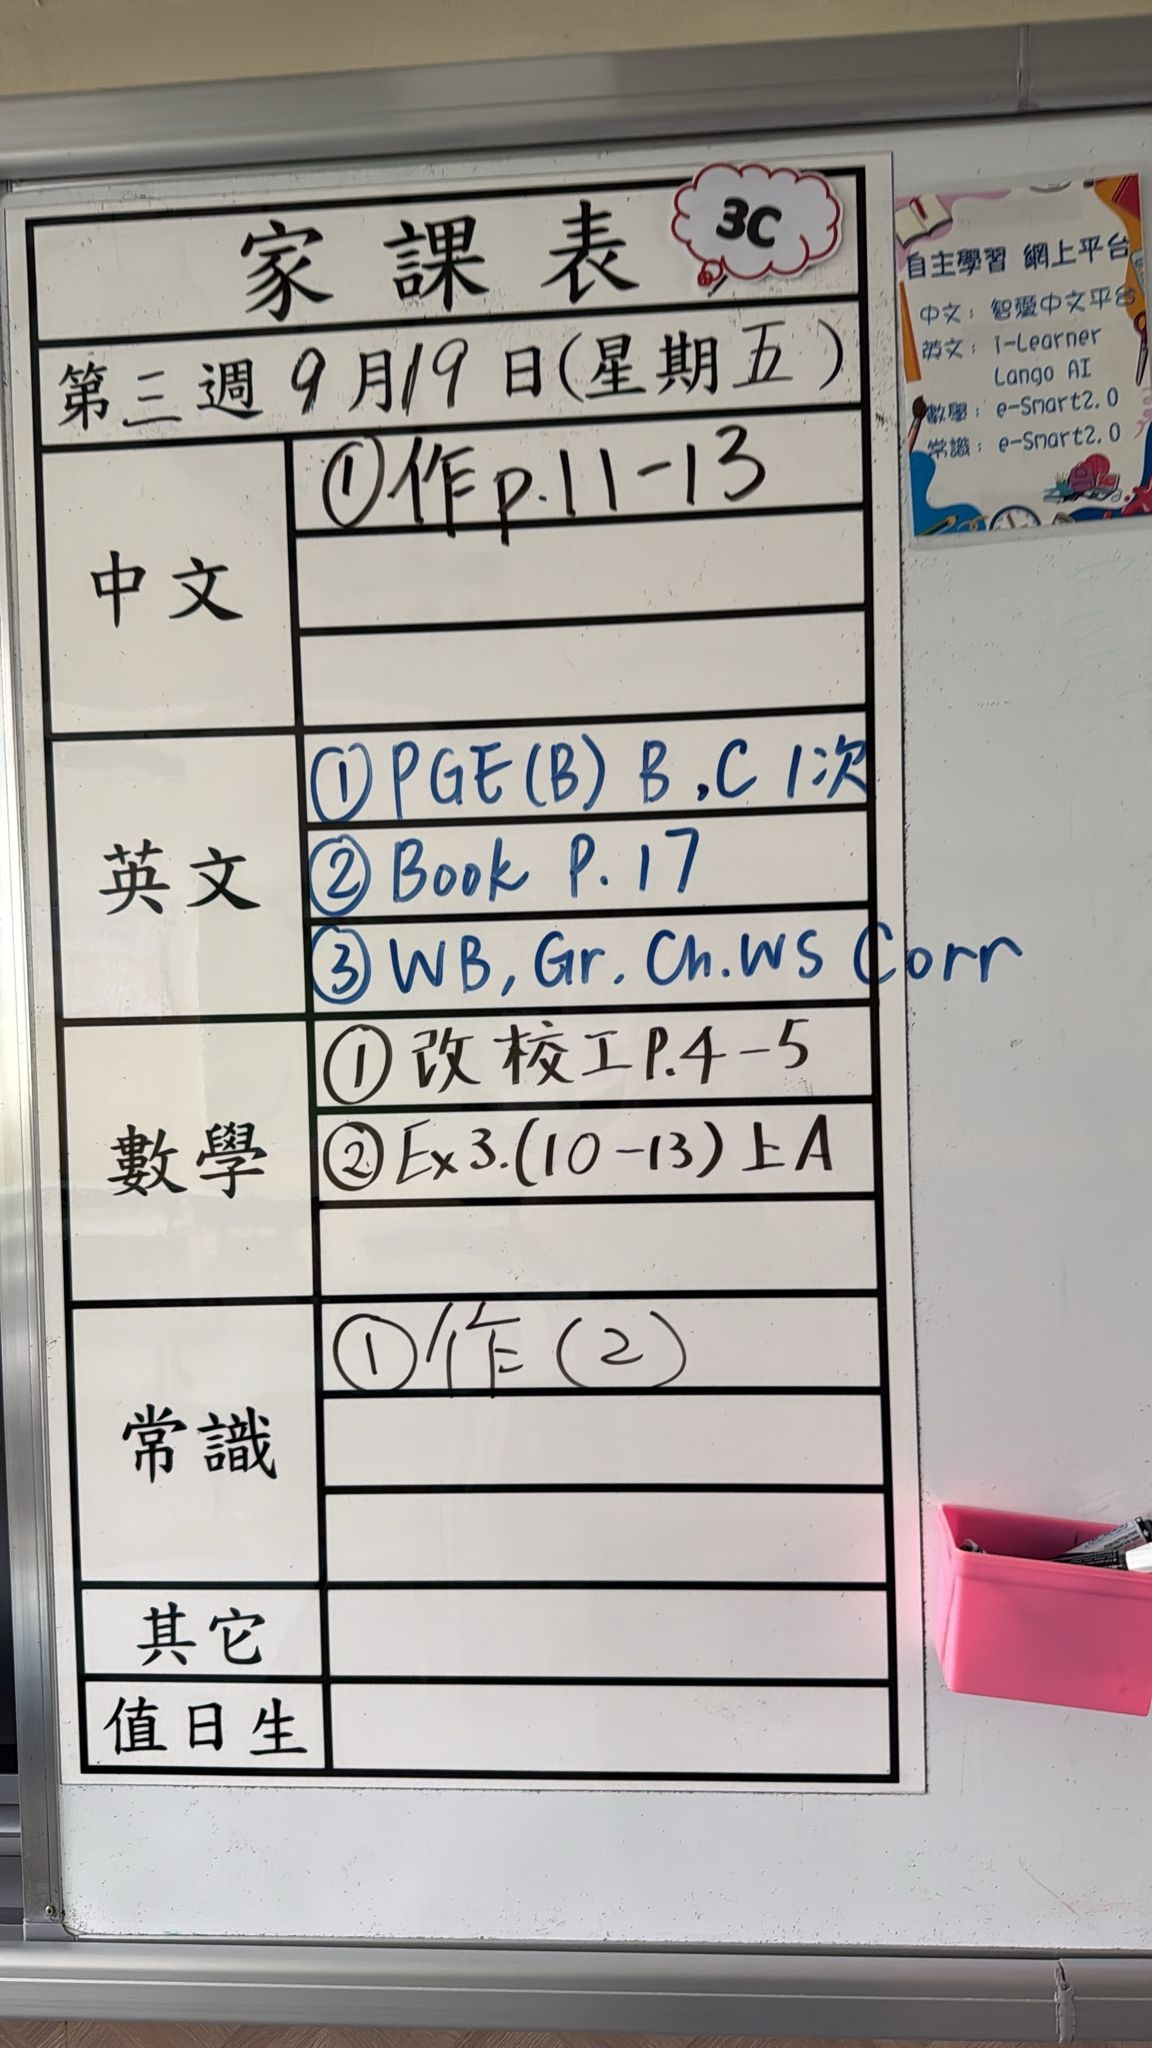 家課表 3C
第三週 9月19日(星期五)
中文
①作p.11-13
英文
①PGE(B) B,C 1次
②Book P.17
③WB, Gr. Ch.WS Corr
數學
①改校工P.4-5
②Ex3.(10-13)上A
常識
①作(2)
其它
值日生
自主學習 網上平台
中文：智愛中文平台
英文：i-Learner
Lango AI
數學：e-Smart2.0
常識：e-Smart2.0